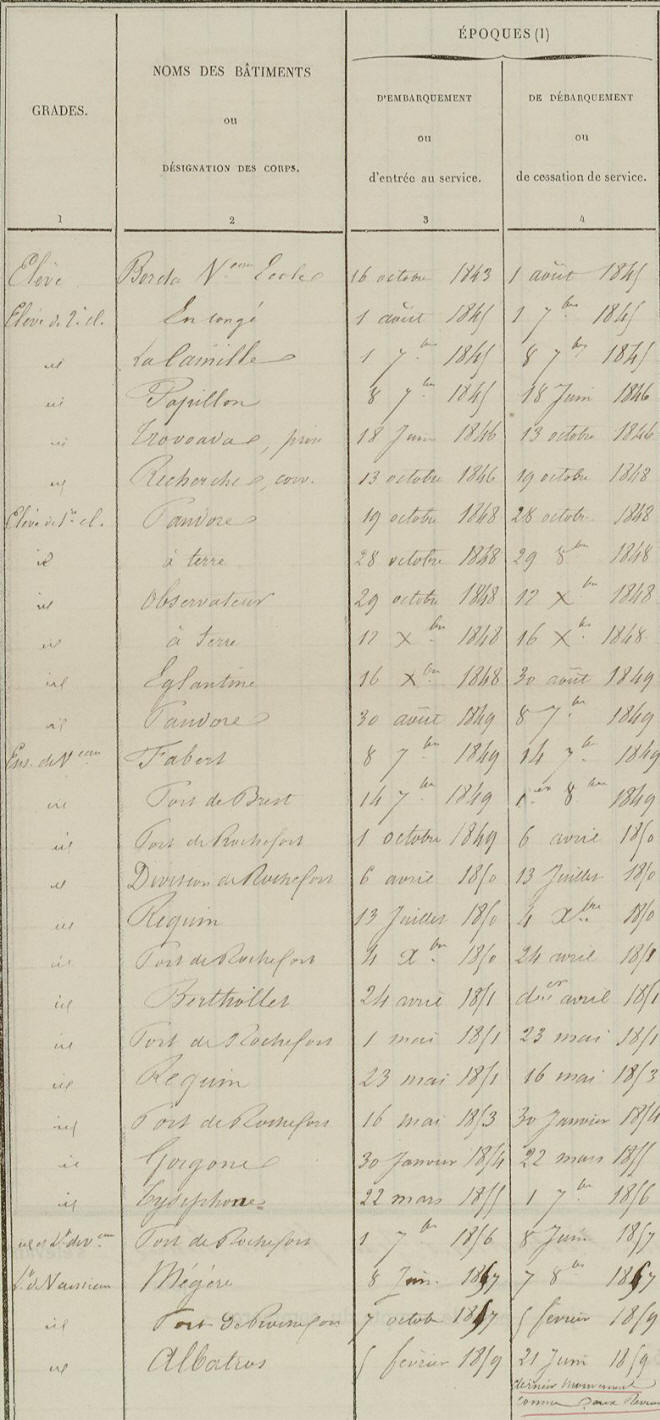 GRADES. NOMS DES BÂTIMENTS ou DÉSIGNATION DES CORPS. ÉPOQUES (1)
D'EMBARQUEMENT ou d'entrée au service. DE DÉBARQUEMENT ou de cessation de service.
1 2 3 4
Elève Borda Vᵉᵃᵘ Ecole 16 octobre 1843 1 août 1845
Elève de 2ᵉ cl. En congé 1 août 1845 1 7ᵇʳᵉ 1845
id La Camille 1 7ᵇʳᵉ 1845 8 7ᵇʳᵉ 1845
id Papillon 8 7ᵇʳᵉ 1845 18 Juin 1846
id 18 Juin 1846 13 octobre 1846
id Recherche, corv. 13 octobre 1846 19 octobre 1848
Elève de 1ʳᵉ cl. Pandore 19 octobre 1848 28 octobre 1848
id à terre 28 octobre 1848 29 8ᵇʳᵉ 1848
id Observateur 29 octobre 1848 12 Xᵇʳᵉ 1848
id à terre 12 Xᵇʳᵉ 1848 16 Xᵇʳᵉ 1848
id Eglantine 16 Xᵇʳᵉ 1848 30 août 1849
id Pandore 30 août 1849 8 7ᵇʳᵉ 1849
Ens. de Vᵉᵃᵘ Fabert 8 7ᵇʳᵉ 1849 14 7ᵇʳᵉ 1849
id Port de Brest 14 7ᵇʳᵉ 1849 1ᵉʳ 8ᵇʳᵉ 1849
id Port de Rochefort 1 octobre 1849 6 avril 1850
id Division de Rochefort 6 avril 1850 13 Juillet 1850
id Requin 13 Juillet 1850 4 Xᵇʳᵉ 1850
id Port de Rochefort 4 Xᵇʳᵉ 1850 24 avril 1851
id Berthollet 24 avril 1851 dᵉʳ avril 1851
id Port de Rochefort 1 mai 1851 23 mai 1851
id Requin 23 mai 1851 16 mai 1853
id Port de Rochefort 16 mai 1853 30 Janvier 1854
id Gorgone 30 Janvier 1854 22 mars 1855
id Tysiphone 22 mars 1855 1 7ᵇʳᵉ 1856
id et Lᵗ de vᵉᵃᵘ Port de Rochefort 1 7ᵇʳᵉ 1856 8 Juin 1857
Lᵗ de Vaisseau Mégère 8 Juin 1857 7 8ᵇʳᵉ 1857
id Port de Rochefort 7 octobre 1857 5 février 1859
id Albatros 5 février 1859 21 Juin 1859
dernier mouvement